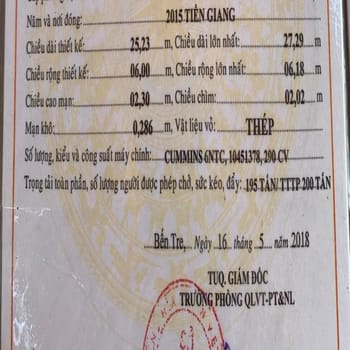 Năm và nơi đóng: 2015 TIỀN GIANG
Chiều dài thiết kế: 25,23 m, Chiều dài lớn nhất: 27,29 m
Chiều rộng thiết kế: 06,00 m, Chiều rộng lớn nhất: 06,18 m
Chiều cao mạn: 02,30 m, Chiều chìm: 02,02 m
Mạn khô: 0,286 m, Vật liệu vỏ: THÉP
Số lượng, kiểu và công suất máy chính: CUMMINS 6NTC, 10451378, 290 CV
Trọng tải toàn phần, số lượng người được phép chở, sức kéo, đẩy: 195 TẤN/ TTTP 200 TẤN
Bến Tre, Ngày 16 tháng 5 năm 2018
TUQ. GIÁM ĐỐC
TRƯỞNG PHÒNG QLVT-PT&NL